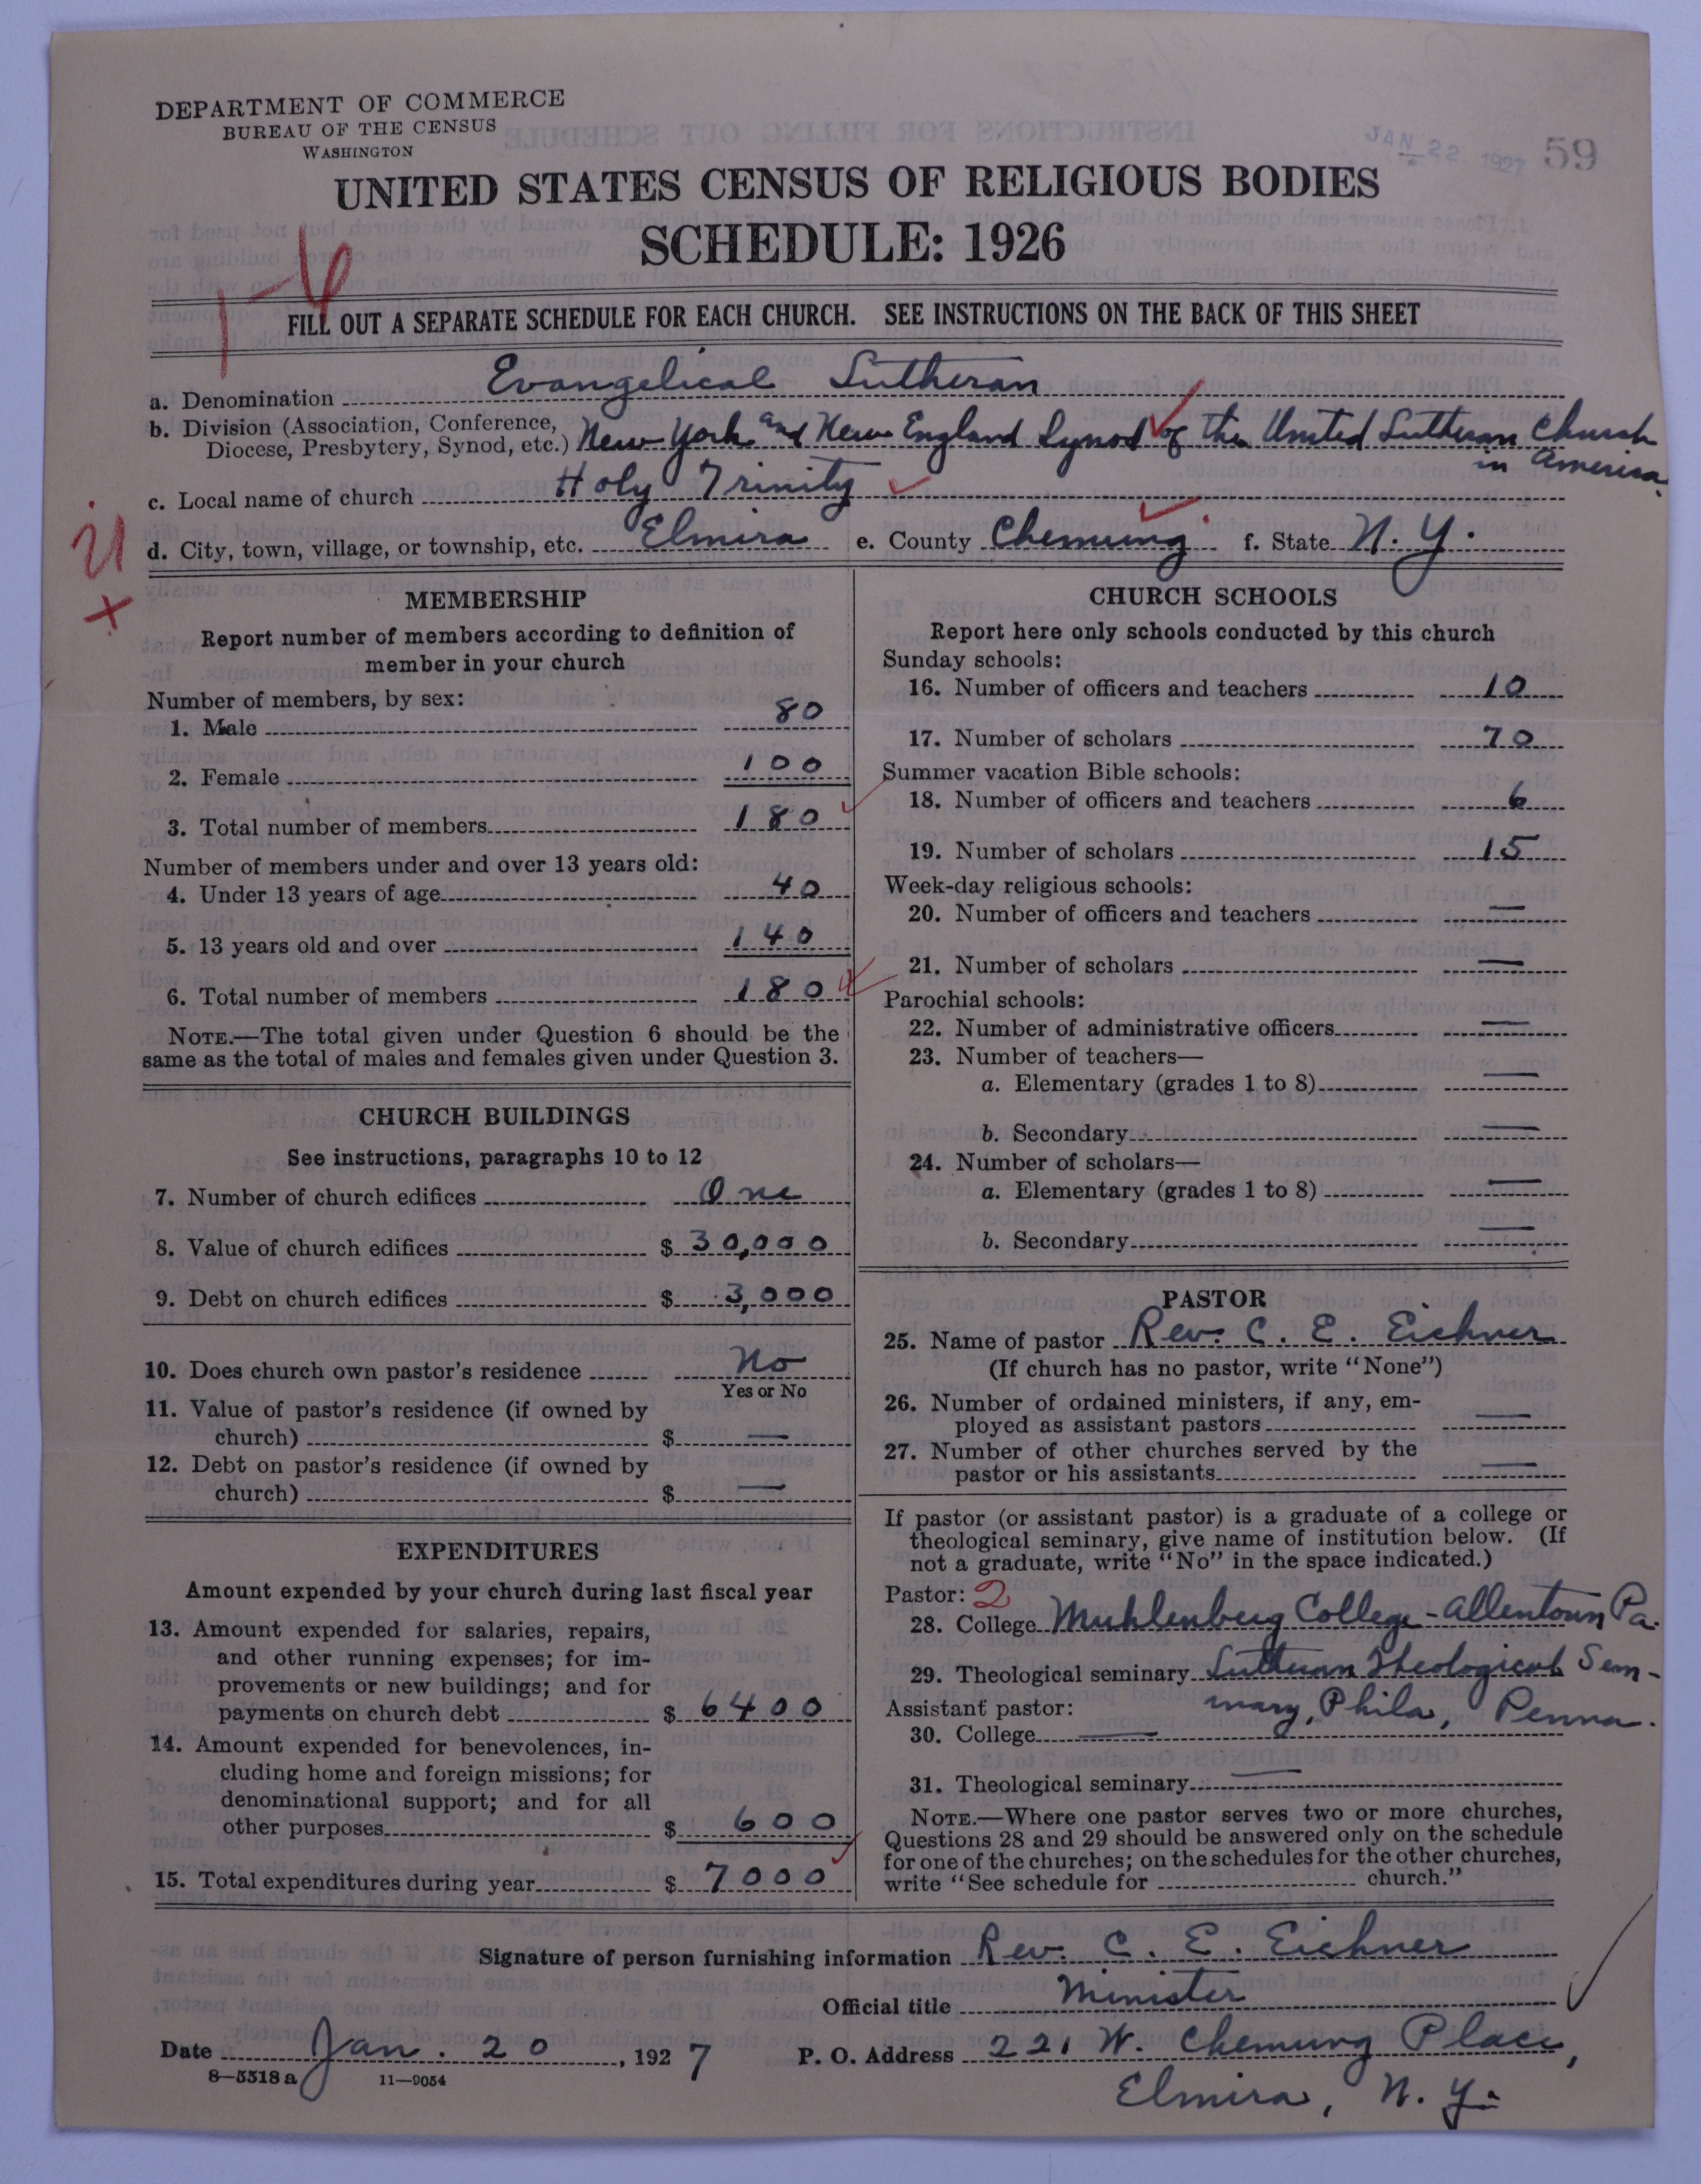 DEPARTMENT OF COMMERCE
BUREAU OF THE CENSUS
WASHINGTON
JAN 22 1927 59
UNITED STATES CENSUS OF RELIGIOUS BODIES
SCHEDULE: 1926
FILL OUT A SEPARATE SCHEDULE FOR EACH CHURCH. SEE INSTRUCTIONS ON THE BACK OF THIS SHEET
a. Denomination Evangelical Lutheran
b. Division (Association, Conference,
Diocese, Presbytery, Synod, etc.) New York and New England Synod of the United Lutheran Church
in America.
c. Local name of church Holy Trinity
d. City, town, village, or township, etc. Elmira e. County Chemung f. State N. Y.
MEMBERSHIP
Report number of members according to definition of
member in your church
Number of members, by sex:
1. Male 80
2. Female 100
3. Total number of members 180
Number of members under and over 13 years old:
4. Under 13 years of age 40
5. 13 years old and over 140
6. Total number of members 180
NOTE.—The total given under Question 6 should be the
same as the total of males and females given under Question 3.
CHURCH BUILDINGS
See instructions, paragraphs 10 to 12
7. Number of church edifices One
8. Value of church edifices $ 30,000
9. Debt on church edifices $ 3,000
10. Does church own pastor's residence No
Yes or No
11. Value of pastor's residence (if owned by
church) $ —
12. Debt on pastor's residence (if owned by
church) $ —
EXPENDITURES
Amount expended by your church during last fiscal year
13. Amount expended for salaries, repairs,
and other running expenses; for im-
provements or new buildings; and for
payments on church debt $ 6400
14. Amount expended for benevolences, in-
cluding home and foreign missions; for
denominational support; and for all
other purposes $ 600
15. Total expenditures during year $ 7000
CHURCH SCHOOLS
Report here only schools conducted by this church
Sunday schools:
16. Number of officers and teachers 10
17. Number of scholars 70
Summer vacation Bible schools:
18. Number of officers and teachers 6
19. Number of scholars 15
Week-day religious schools:
20. Number of officers and teachers —
21. Number of scholars —
Parochial schools:
22. Number of administrative officers —
23. Number of teachers—
a. Elementary (grades 1 to 8) —
b. Secondary —
24. Number of scholars—
a. Elementary (grades 1 to 8) —
b. Secondary —
PASTOR
25. Name of pastor Rev. C. E. Eichner
(If church has no pastor, write "None")
26. Number of ordained ministers, if any, em-
ployed as assistant pastors —
27. Number of other churches served by the
pastor or his assistants —
If pastor (or assistant pastor) is a graduate of a college or
theological seminary, give name of institution below. (If
not a graduate, write "No" in the space indicated.)
Pastor: 2
28. College Muhlenberg College - Allentown Pa.
29. Theological seminary Lutheran Theological Sem-
inary, Phila, Penna.
Assistant pastor:
30. College —
31. Theological seminary —
NOTE.—Where one pastor serves two or more churches,
Questions 28 and 29 should be answered only on the schedule
for one of the churches; on the schedules for the other churches,
write "See schedule for church."
Signature of person furnishing information Rev. C. E. Eichner
Official title Minister
Date Jan. 20, 1927 P. O. Address 221 W. Chemung Place,
8—5518 a 11—9054
Elmira, N. Y.